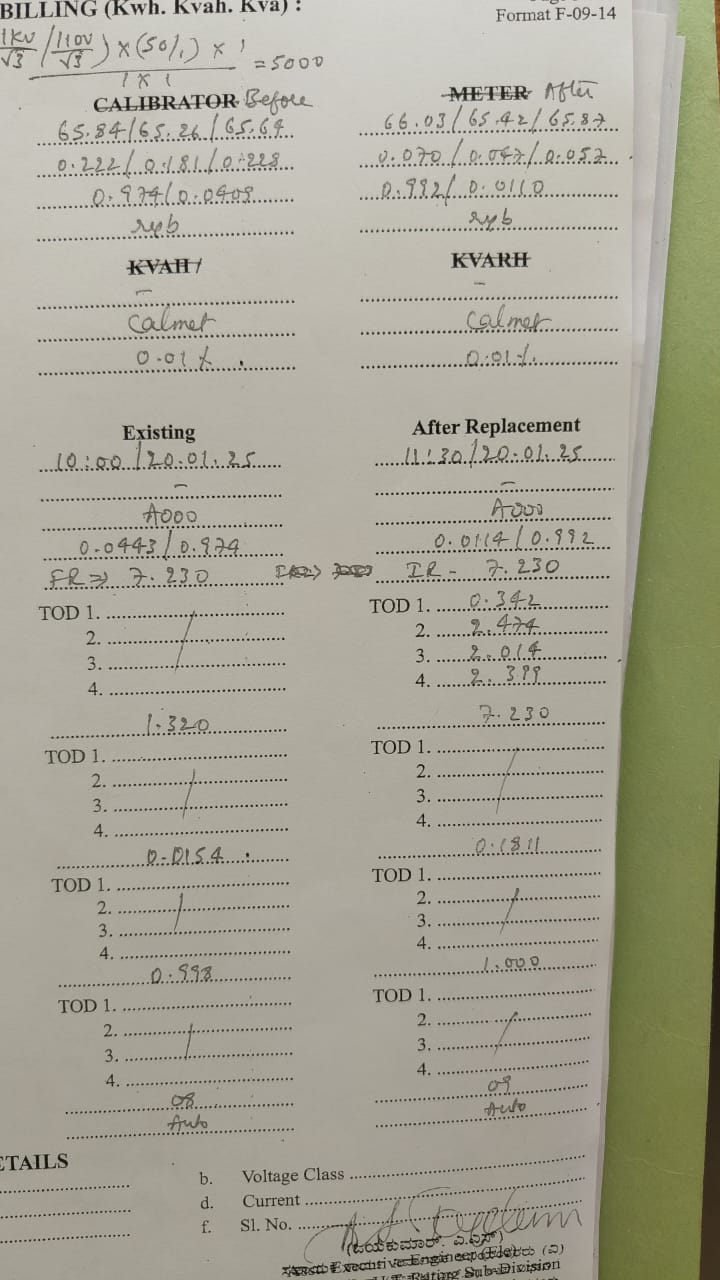 BILLING (Kwh. Kvah. Kva) :
Format F-09-14
1KV/√3 / 110V/√3 ) x (50/1) x 1
1 x 1
= 5000
CALIBRATOR Before METER After
65.84/65.26/65.64 66.03/65.42/65.87
0.222/0.181/0.228 0.070/0.047/0.057
0.974/0.0409 0.992/0.0110
ryb ryb
KVAH/ KVARH
- -
Calmet Calmet
0.01% 0.01%
Existing After Replacement
10:00/20.01.25 11:30/20.01.25
- -
A000 A000
0.0443/0.974 0.0114/0.992
FR => 7.230 IR - 7.230
TOD 1. TOD 1. 0.342
2. 2. 2.474
3. 3. 2.014
4. 4. 2.399
1.320 7.230
TOD 1. TOD 1.
2. 2.
3. 3.
4. 4.
0-0154 0.1811
TOD 1. TOD 1.
2. 2.
3. 3.
4. 4.
0.998 1.000
TOD 1. TOD 1.
2. 2.
3. 3.
4. 4.
08 09
Auto Auto
ETAILS
b. Voltage Class
d. Current
f. Sl. No.
(ಜಯಕುಮಾರ್. ಎ.ಎಸ್)
Asst. Executive Engineer (Ele)
Rating Sub-Division